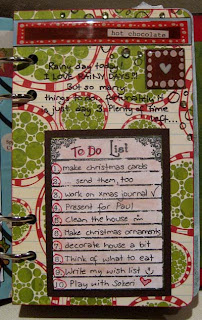 hot chocolate
Rainy day today!
I LOVE RAINY DAYS!!
But so many
things to do, naturally it
is just day 3. Plenty of time
left...
To Do List
1 make christmas cards
2 ... send them, too
3 work on xmas journal ✓
4 Present for Paul
5 Clean the house
6 Make christmas ornaments
7 decorate house a bit
8 Think of what to eat
9 Write my wish list
10 Play with